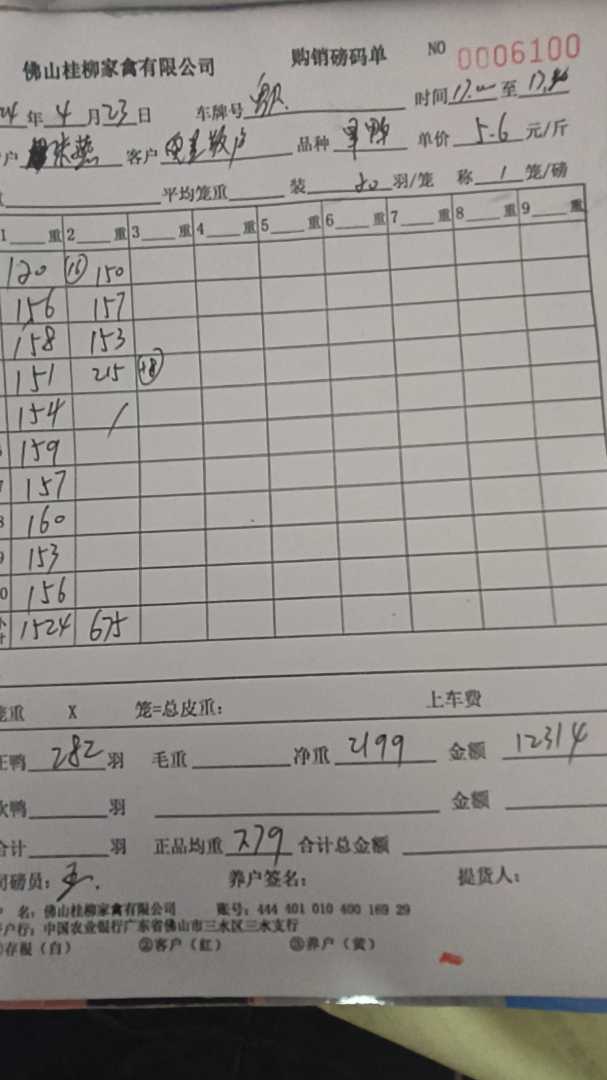 佛山桂柳家禽有限公司 购销磅码单 NO 0006100
24 年 4 月 23 日 车牌号 时间 17.00 至
户 张燕 客户 散户 品种 单价 5.6 元/斤
平均笼重 装 20 羽/笼 称 1 笼/磅
1 重 2 重 3 重 4 重 5 重 6 重 7 重 8 重 9 重
120 (16) 150
156 157
158 153
151 215 (28)
154 /
159
7 157
8 160
9 153
0 156
小计 1524 675
笼重 X 笼=总皮重: 上车费
正鸭 282 羽 毛重 净重 2199 金额 12314
次鸭 羽 金额
合计 羽 正品均重 779 合计总金额
司磅员: 养户签名: 提货人:
户 名: 佛山桂柳家禽有限公司 账号: 444 401 010 400 169 29
开户行: 中国农业银行广东省佛山市三水区三水支行
①存根(白) ②客户(红) ③养户(黄)